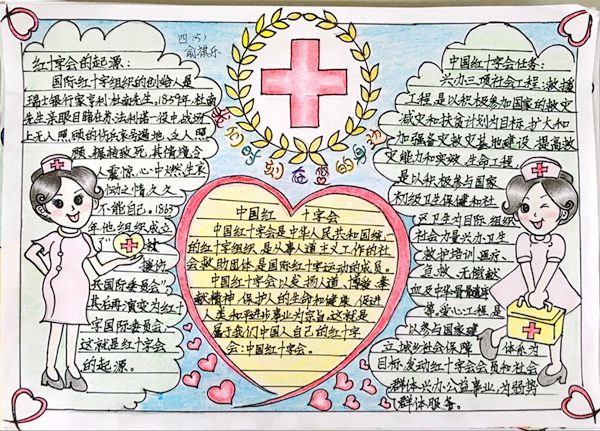 四(5)
俞祺乐
我们时刻在您的身边
红十字会的起源:
国际红十字组织的创始人是
瑞士银行家亨利·杜南先生,1859年,杜南
先生亲眼目睹在法利诺一役中战场
上无人照顾的伤兵哀号遍地,乏人照
顾,辗转致死,其情境令
人震惊,心中燃生哀
恸之情久久
不能自己。1863
年他组织成立
了"救
援伤
兵国际委员会"
其后再演变为红十
字国际委员会,
这就是红十字会
的起源。
中国红十字会
中国红十字会是中华人民共和国统一
的红十字组织,是从事人道主义工作的社
会救助团体,是国际红十字运动的成员。
中国红十字会以发扬人道、博爱、奉
献精神,保护人的生命和健康,促进
人类和平进步事业为宗旨,这就是
属于我们中国人自己的红十字
会:中国红十字会。
中国红十字会任务:
兴办三项社会工程:救援
工程是以积极参加国家的救灾
减灾和扶贫计划为目标,扩大和
加强备灾救灾基地建设,提高救
灾能力和实效。生命工程
是以积极参与国家
初级卫生保健和社
区卫生为目标,组织
社会力量兴办卫生
救护培训、医疗、
急救、无偿献
血及中华骨髓库
等。爱心工程是
以参与国家建
立城乡社会保障体系为
目标,发动红十字会会员和社会
群体兴办公益事业,为弱势
群体服务。